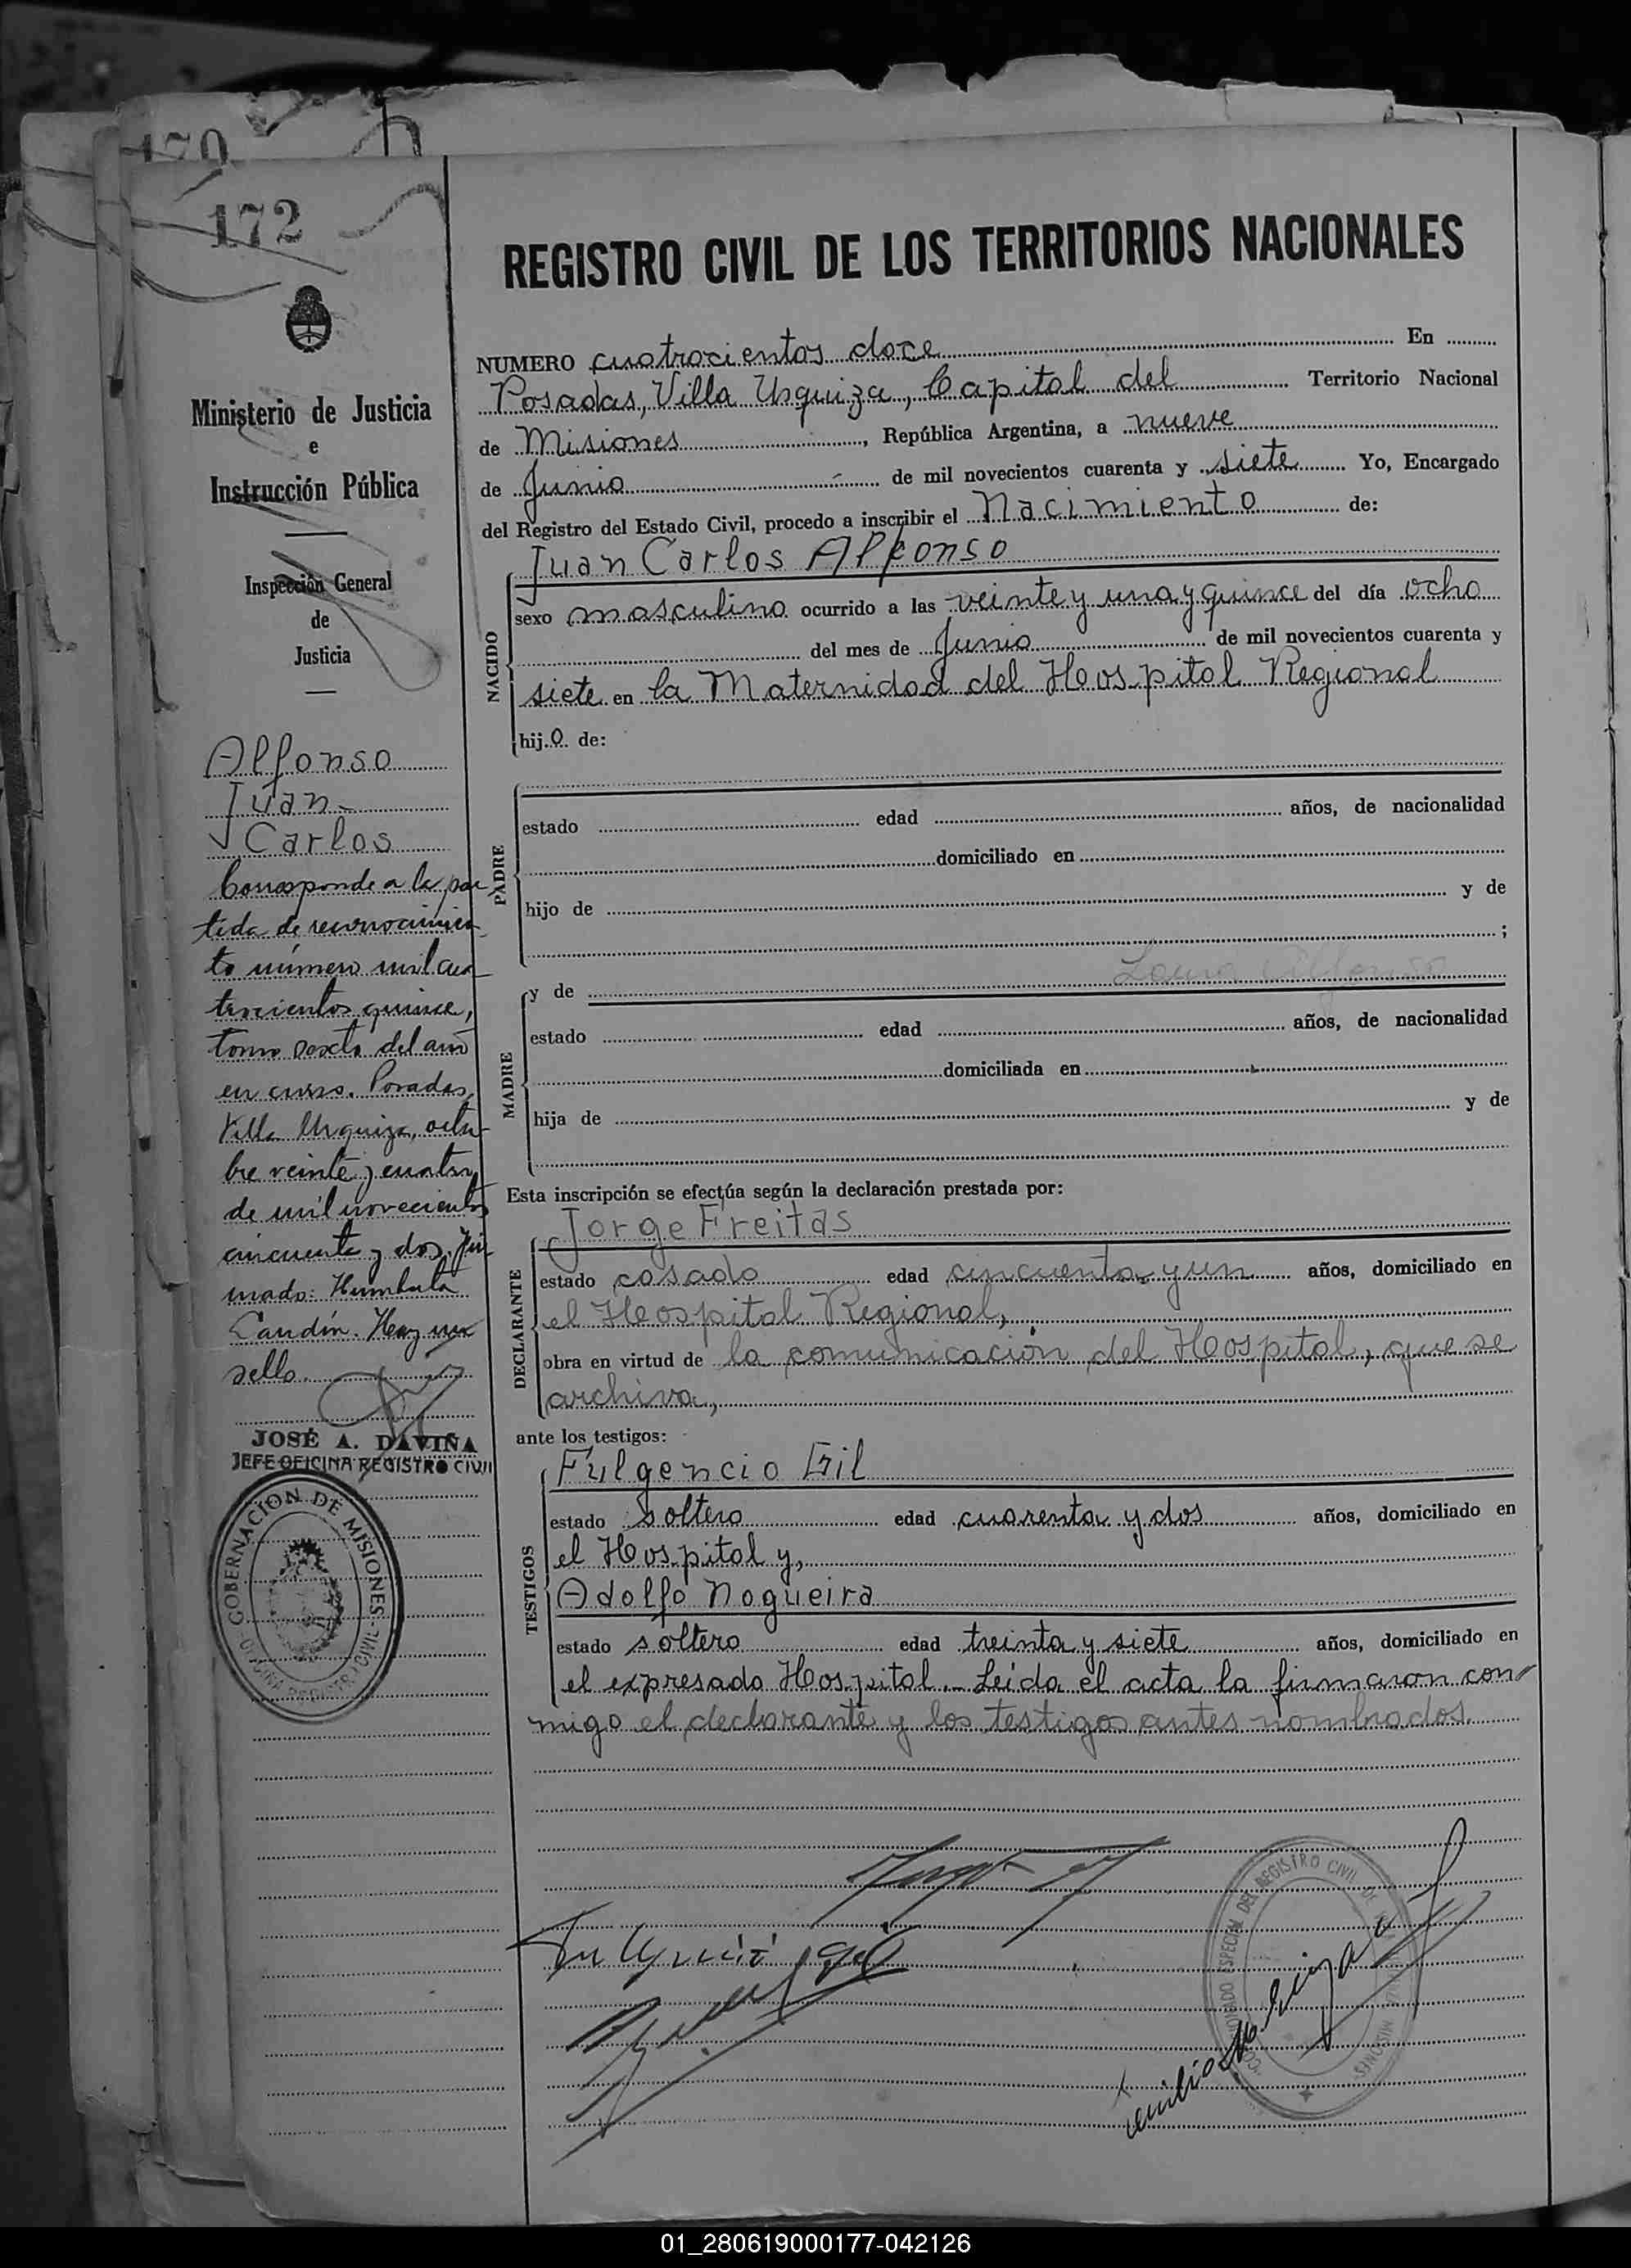 170
172
Ministerio de Justicia
e
Instrucción Pública
Inspección General
de
Justicia
Alfonso
Juan
Carlos
Corresponde a la par
tida de reconocimien
to número mil cua
trocientos quince,
tomo sexto del año
en curso. Posadas,
Villa Urquiza, octu
bre veinte y cuatro
de mil novecientos
cincuenta y dos. Fir
mado: Humberto
Candín. Hay un
sello.
JOSÉ A. DAVIÑA
JEFE OFICINA REGISTRO CIVIL
GOBERNACION DE MISIONES
OFICINA REGISTRO CIVIL
REGISTRO CIVIL DE LOS TERRITORIOS NACIONALES
NUMERO cuatrocientos doce En
Posadas, Villa Urquiza, Capital del Territorio Nacional
de Misiones, República Argentina, a nueve
de Junio de mil novecientos cuarenta y siete Yo, Encargado
del Registro del Estado Civil, procedo a inscribir el Nacimiento de:
NACIDO
Juan Carlos Alfonso
sexo masculino ocurrido a las veinte y una y quince del día ocho
del mes de Junio de mil novecientos cuarenta y
siete en la Maternidad del Hospital Regional
hijo de:
PADRE
estado edad años, de nacionalidad
domiciliado en
hijo de y de
;
Laura Alfonso
MADRE
y de
estado edad años, de nacionalidad
domiciliada en
hija de y de
Esta inscripción se efectúa según la declaración prestada por:
DECLARANTE
Jorge Freitas
estado casado edad cincuenta y un años, domiciliado en
el Hospital Regional,
obra en virtud de la comunicación del Hospital, que se
archiva,
ante los testigos:
TESTIGOS
Fulgencio Gil
estado soltero edad cuarenta y dos años, domiciliado en
el Hospital y,
Adolfo Nogueira
estado soltero edad treinta y siete años, domiciliado en
el expresado Hospital.- Leída el acta la firmaron con
migo el declarante y los testigos antes nombrados.
Fulgencio Gil
ESPECIAL DEL REGISTRO CIVIL
MISIONES
01_280619000177-042126